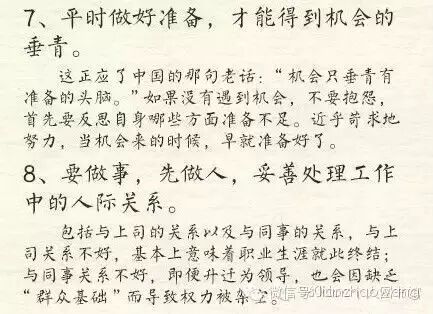 7、平时做好准备，才能得到机会的
垂青。
这正应了中国的那句老话：“机会只垂青有
准备的头脑。”如果没有遇到机会，不要抱怨，
首先要反思自身哪些方面准备不足。近乎苛求地
努力，当机会来的时候，早就准备好了。
8、要做事，先做人，妥善处理工作
中的人际关系。
包括与上司的关系以及与同事的关系，与上
司关系不好，基本上意味着职业生涯就此终结；
与同事关系不好，即便升迁为领导，也会因缺乏
“群众基础”而导致权力被架空。
微信号